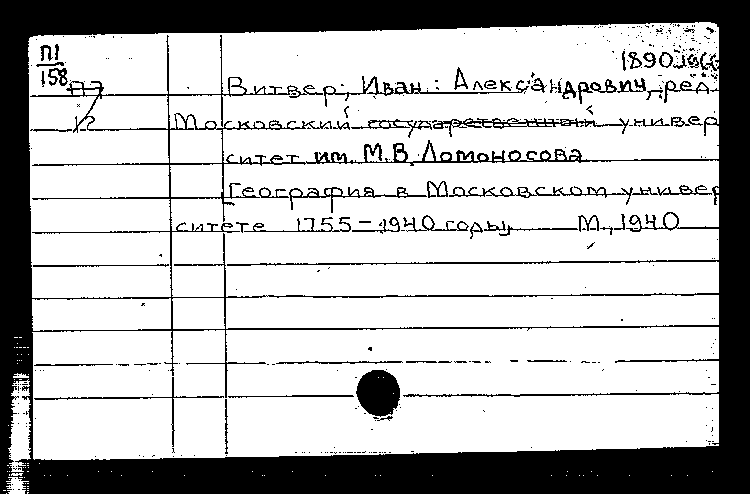 П1
158
1890
Витвер, Иван Александрович, ред.
Московский государственный универ
ситет им. М.В. Ломоносова
География в Московском универ
ситете 1755-1940 годы, М., 1940